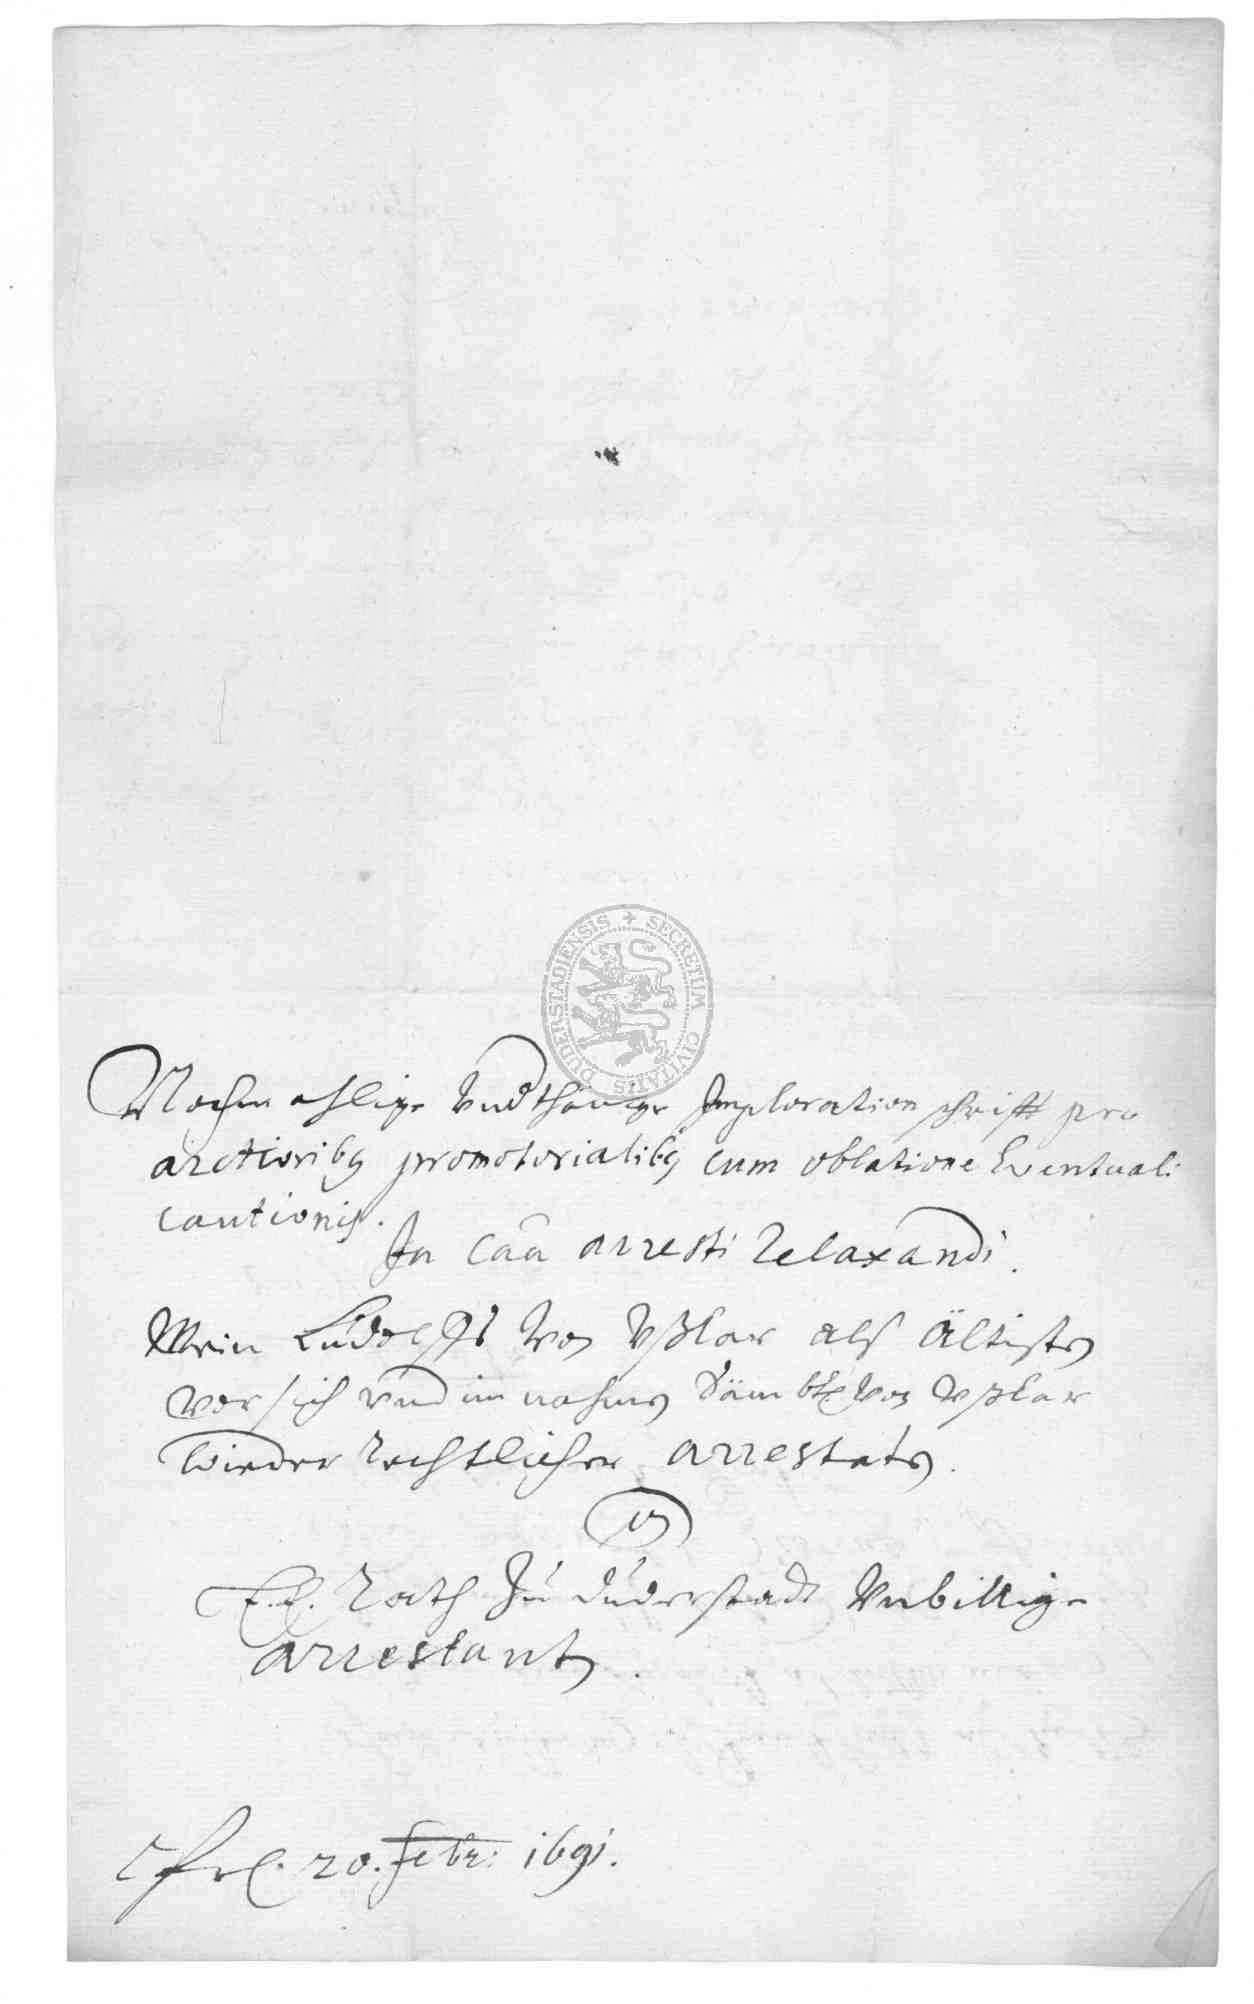 SECRETUM CIVITATIS DUDERSTADIENSIS
Nochmahlige Vndthänige Imploration schrifft pro
arctiorib9 promotorialib9 cum oblatione Eventual:
cautionis.
In Caâ arresti Relaxandi.
Mein Ludolffs von Vßlar als Ältisten
vor sich vnd im nahmen Sämbtl. von Vßlar
wieder rechtlicher arrestaten.
E. E. Rath zu duderstadt Vnbillige
arrestanten.
20. Febr: 1691.